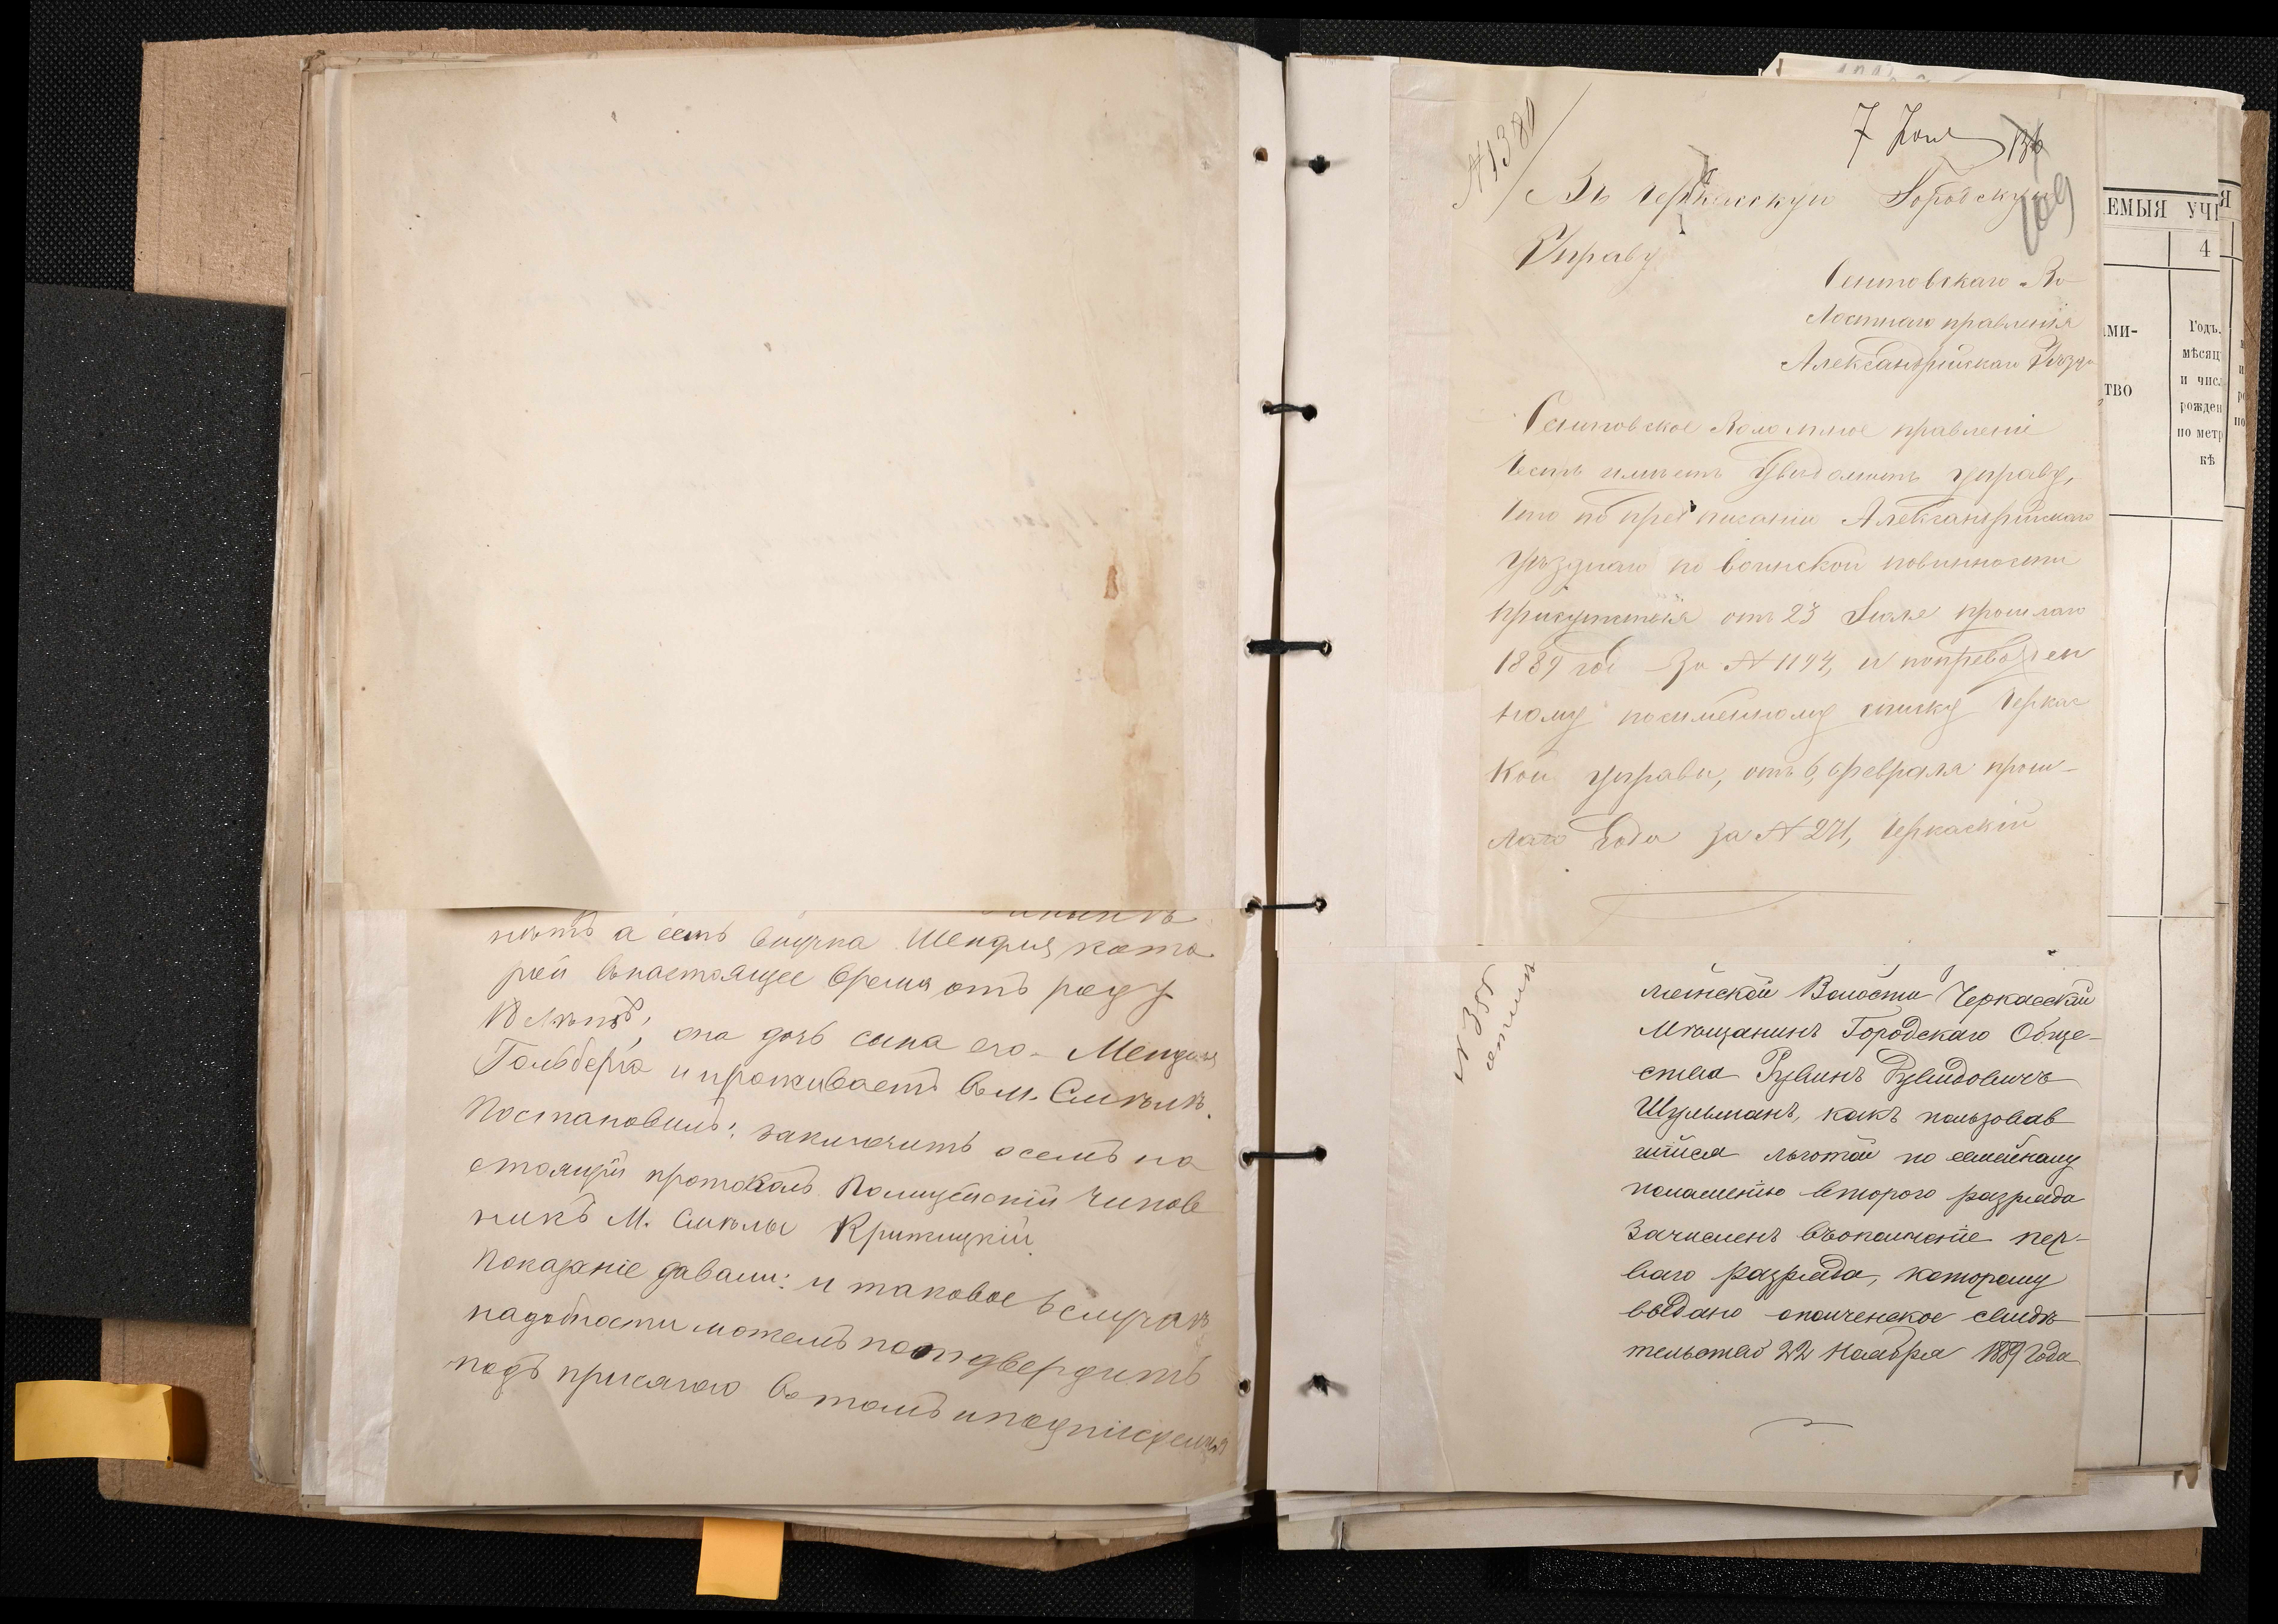 нѣтъ а есть внучка Шендля кото
рой внастоящее время отъ роду
18 лѣтъ, она дочь сына его Менделя
Гольдберга и проживаетъ в м. Смѣлѣ.
Постановилъ: заключить о семъ на
стоящій протоколъ. Полицейскій чинов
никъ М. Смѣлы Крижицкій
Показаніе давали: и таковое в случаѣ
надобности можемъ подтвердить
подъ присягою в томъ и подписуемся
№1380
7 Юня
136
109
Въ Черкасскую Городскую
Управу
Оситовскаго Во-
лостнаго правленія
Александрійскаго Уѣзда
Оситовское Волостное правленіе
Честь имѣетъ Увѣдомить управу,
что по предписанію Александрійскаго
Уѣзднаго по воинской повинности
присутствія отъ 23 Іюля прошлаго
1889 года за № 1194, и
ному поименному списку Черкас
кой управы, отъ 6 февраля прош-
лаго Года за № 271, Черкаскій
№ 355
Волости Черкасскій
Мѣщанинъ Городскаго Обще-
ства Рувинъ Рувидовичъ
Шульманъ, какъ пользовав
шійся льготой по семейному
положенію второго разряда
Зачисленъ въ ополченіе пер-
ваго разряда, которому
выдано ополченское свидѣ
тельство 22 Ноября 1889 Года
ЕМЫЯ УЧ
Я
4
МИ-
ТВО
Годъ,
мѣсяц
и чис
рожден
по метр
кѣ